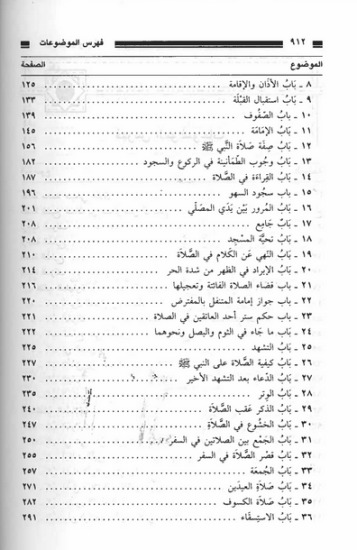 ٩١٢ فهرس الموضوعات
الموضوع الصفحة
٨ ـ بَابُ الأَذَان والإقامة ١٢٥
٩ ـ بَابُ استقبال القِبْلَة ١٣٣
١٠ ـ بابُ الصّفُوف ١٣٩
١١ ـ بَابُ الإمَامَة ١٤٥
١٢ ـ بَابُ صِفَة صَلاَة النَّبي ﷺ ١٥٦
١٣ ـ بَابُ وجُوب الطّمَأنِينة في الركوع والسجود ١٨٢
١٤ ـ بَابُ القِراءَة في الصَّلاة ١٨٧
١٥ ـ باب سجُود السهو ١٩٦
١٦ ـ بَابُ المُرور بَيْن يَدَي المصَلّي ٢٠١
١٧ ـ بَابُ جَامِع ٢٠٨
١٨ ـ بَابُ تحيَّة المسْجِد ٢٠٨
١٩ ـ بَابُ النّهي عَن الكَلام في الصَّلاَة ٢١٠
٢٠ ـ بَابُ الإبراد في الظهر من شدة الحر ٢١٤
٢١ ـ باب قضاء الصلاة الفائتة وتعجيلها ٢١٦
٢٢ ـ باب جواز إمامة المتنفل بالمفترض ٢٢٠
٢٣ ـ باب حكم ستر أحد العاتقين في الصلاة ٢٢١
٢٤ ـ بَابُ ما جَاء في الثوم والبصل ونحوهما ٢٢٢
٢٥ ـ بَابُ التشهد ٢٢٥
٢٦ ـ بَابُ كيفية الصَّلاة على النبي ﷺ ٢٢٧
٢٧ ـ بَابُ الدّعاء بعد التشهد الأخير ٢٣٠
٢٨ ـ بَابُ الوِتر ٢٣٥
٢٩ ـ بَابُ الذكر عَقب الصَّلاَة ٢٤٠
٣٠ ـ بَابُ الخشُوع في الصَّلاَةِ ٢٤٧
٣١ ـ بَابُ الجَمْع بين الصلاتين في السفر ٢٥٠
٣٢ ـ بَابُ قصْر الصَّلاَة في السفر ٢٥٥
٣٣ ـ بَابُ الجُمعَة ٢٥٧
٣٤ ـ بَابُ صَلاَةِ العيدَين ٢٧١
٣٥ ـ بَابُ صَلاَة الكسوف ٢٨٢
٣٦ ـ بَابُ الاستِسقَاء ٢٩١